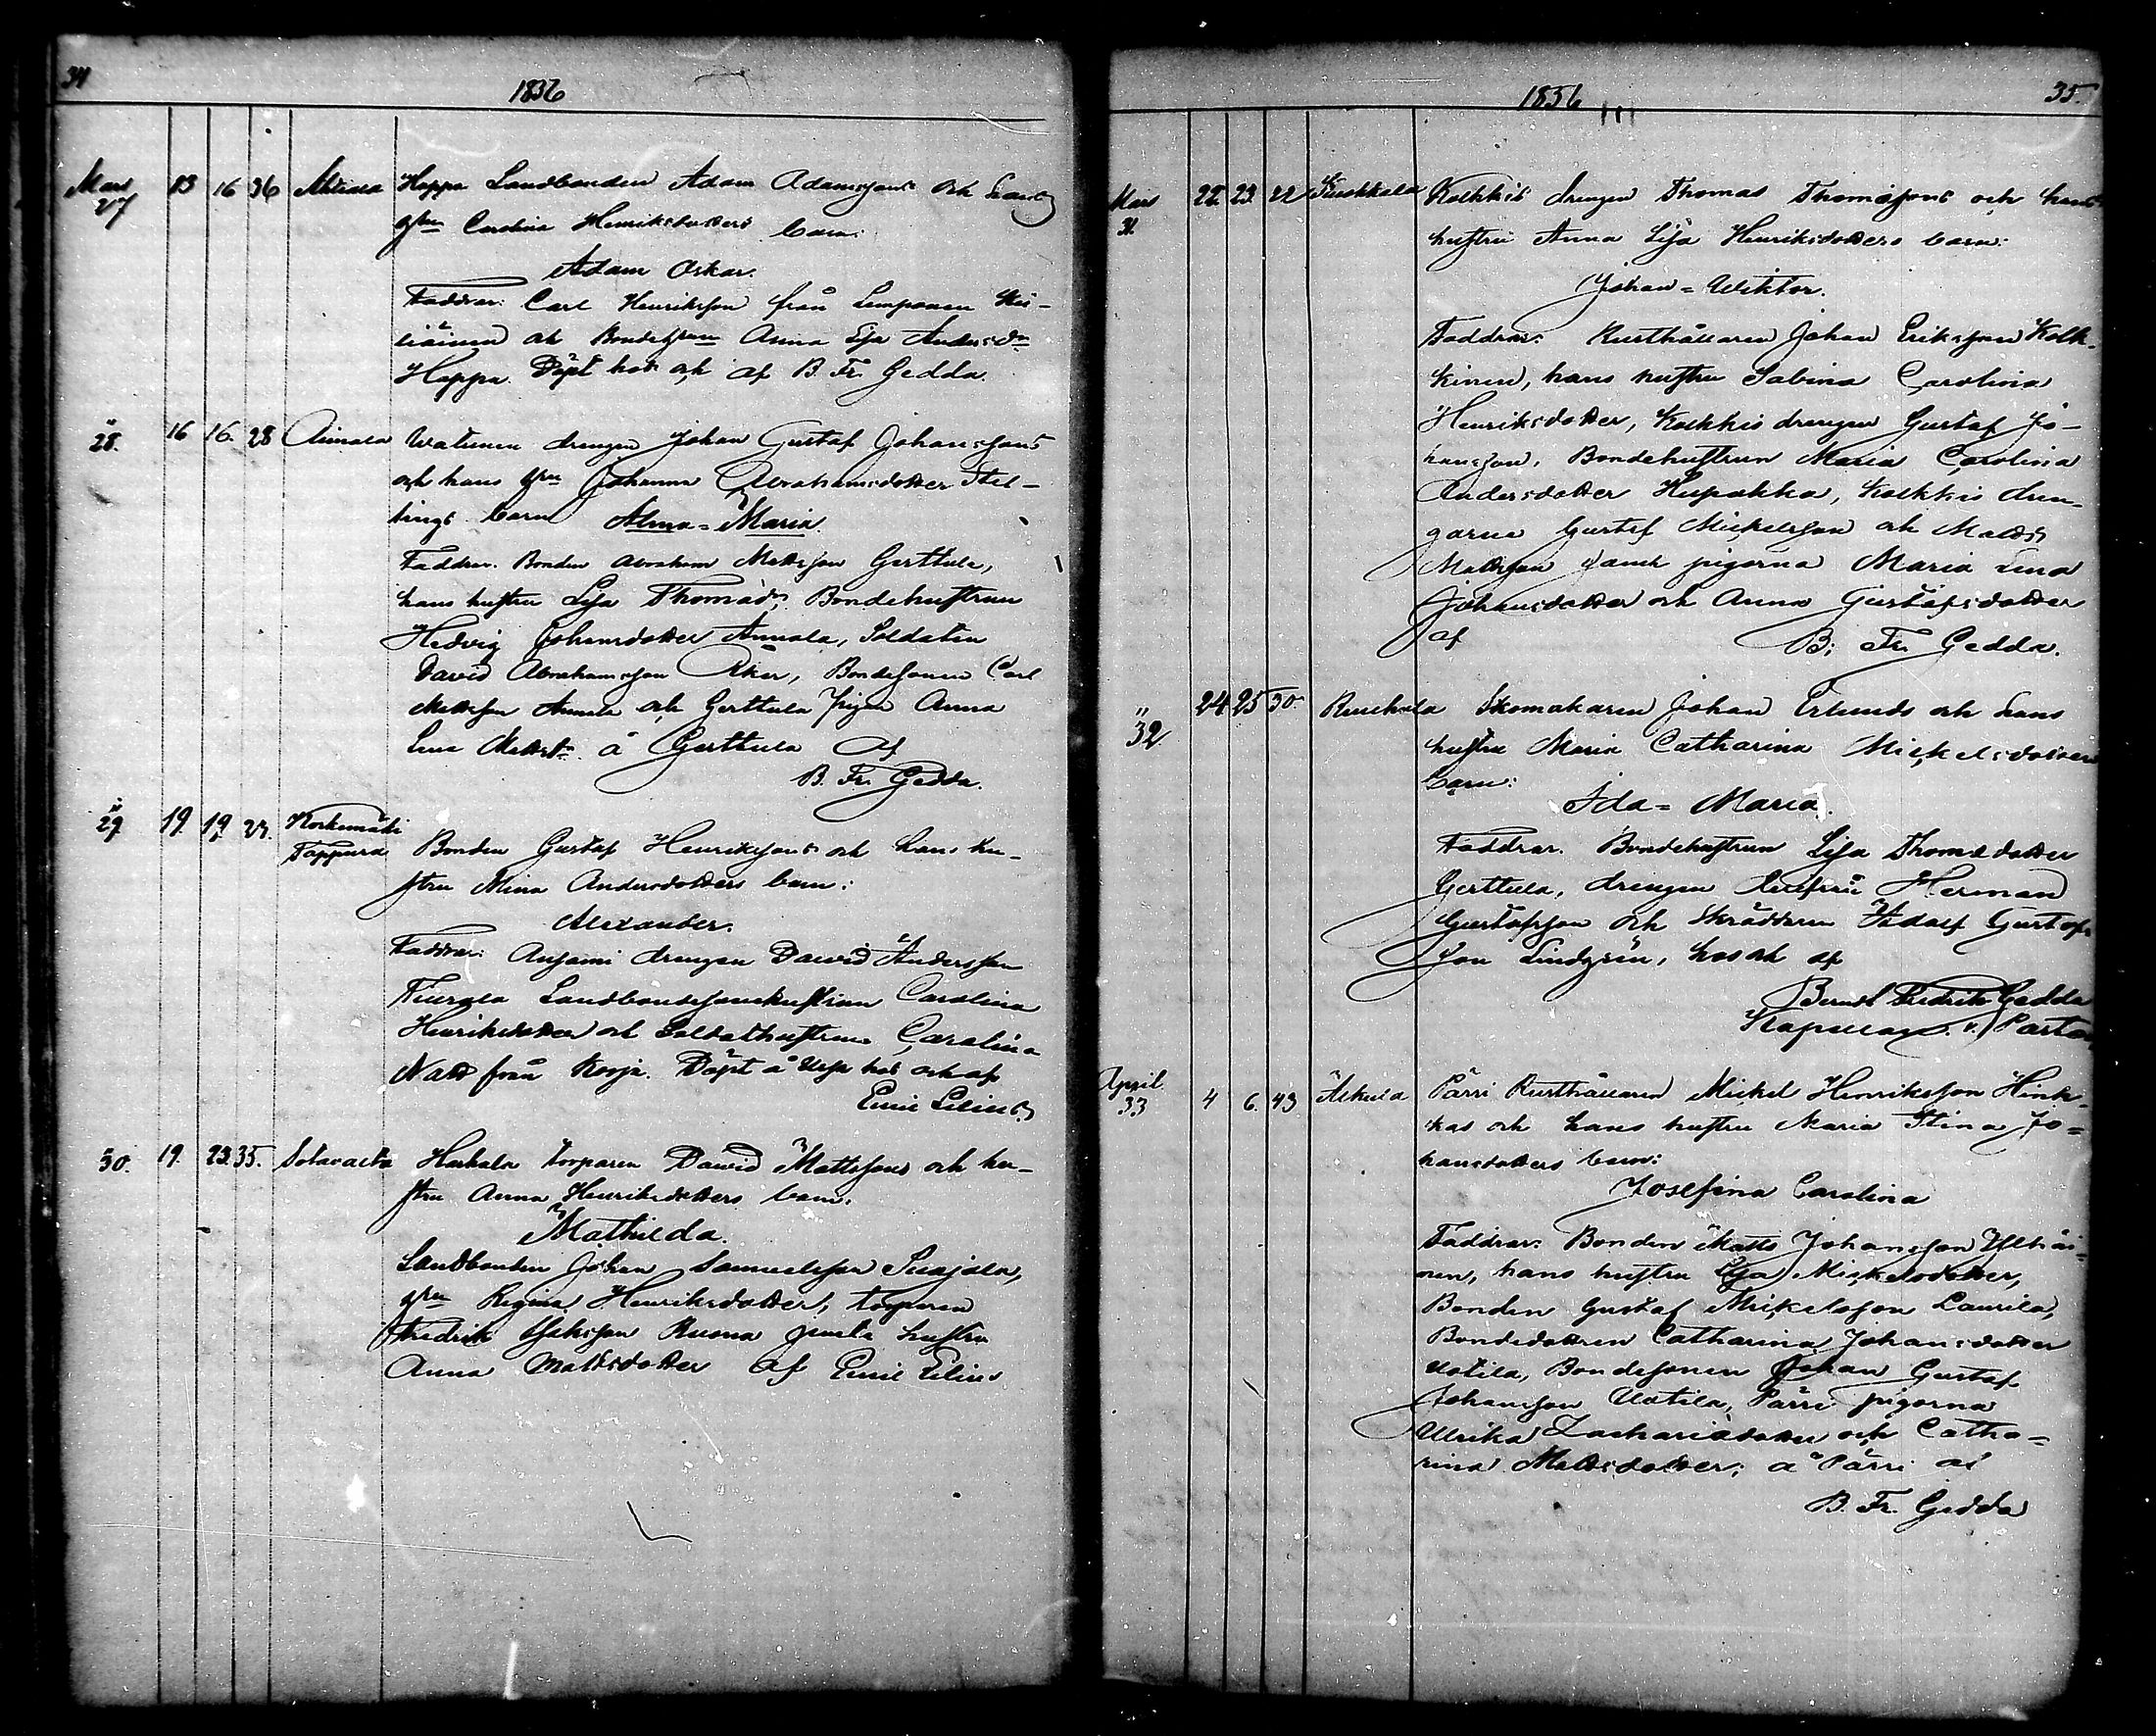 34
1856
Mars
27 13 16 36 Hoppa Landbonden Adam Adamssons och hans
hru Carolina Henriksdotters barn:
Adam Oskar.
Faddrar: Carl Henriksson från Lemponen
och Bondehrun Anna Lisa Andersdr
Hoppa. Döpt hos och af B. Fr. Gedda.
28. 16 16. 28 Annala drengen Johan Gustaf Johanssons
och hans hru Johanna Abrahamsdotter
barn Alma=Maria.
Faddrar. Bonden Abraham Mattsson Gerttula,
hans hustru Lisa Thomasdr, Bondehustrun
Hedvig Johansdotter Annala, Soldaten
David Abrahamsson Åker, Bondesonen Carl
Mattsson Annala och Gerttula Pigan Anna
Lena Mattsdr å Gerttula af
B. Fr. Gedda.
29 19. 19. Korkemäki
Tappura Bonden Gustaf Henrikssons och hans hu-
stru Mina Andersdotters barn:
Alexander.
Faddrar: Anjami drengen David Andersson
Landbondesonehustrun Carolina
Henriksdotter och Soldathustrun Carolina
från Korja. Döpt å hos och af
Emil Lilius
30. 19. 23. 35. Sotavalta torparen David Mattssons och hu-
stru Anna Henriksdotters barn:
Mathilda.
Landbonden Johan Samuelsson
hru Regina Henriksdotter, torparen
Fredrik Ruona hustru
Anna Mattsdotter af Emil Lilius
1856
35.
Mars
31. 22. 23. 22 Kuokkala Kolkkis drengen Thomas Thomassons och hans
hustru Anna Lisa Henriksdotters barn:
Johan=Wiktor.
Faddrar: Rusthållaren Johan Eriksson Kolk-
kinen, hans hustru Sabina Carolina
Henriksdotter, Kolkkis drengen Gustaf Jo-
hansson, Bondehustrun Maria Carolina
Andersdotter Hupakka, Kolkkis dren-
garne Gustaf Mickelsson och Matts
Mattsson samt pigorna Maria Lena
Johansdotter och Anna Gustafsdotter
af B. Fr. Gedda.
"
32. 24 25 30. Skomakaren Johan Erlunds och hans
hustru Maria Catharina Mickelsdotters
barn:
Ida=Maria.
Faddrar. Bondehustrun Lisa Thomasdotter
Gerttula, drengen Herman
Gustafsson och Skräddaren Adolf Gustafs-
son Lindgrén, hos och af
Berndt Fredrik Gedda
Kapellan. v. Pastor
April
33 4 6. 43 Pärri Rusthållaren Mickel Henriksson Hink-
kas och hans hustru Maria Stina Jo=
hansdotters barn:
Josefina Carolina
Faddrar: Bonden Matts Johansson Ylhäi-
nen, hans hustru Lisa Mickelsdotter,
Bonden Gustaf Mickelsson Laurila,
Bondedottren Catharina Johansdotter
Uotila, Bondesonen Johan Gustaf
Johansson Uotila, Pärri pigorna
Ulrika Zachariasdotter och Catha=
rina Mattsdotter; å Pärri af
B. Fr. Gedda